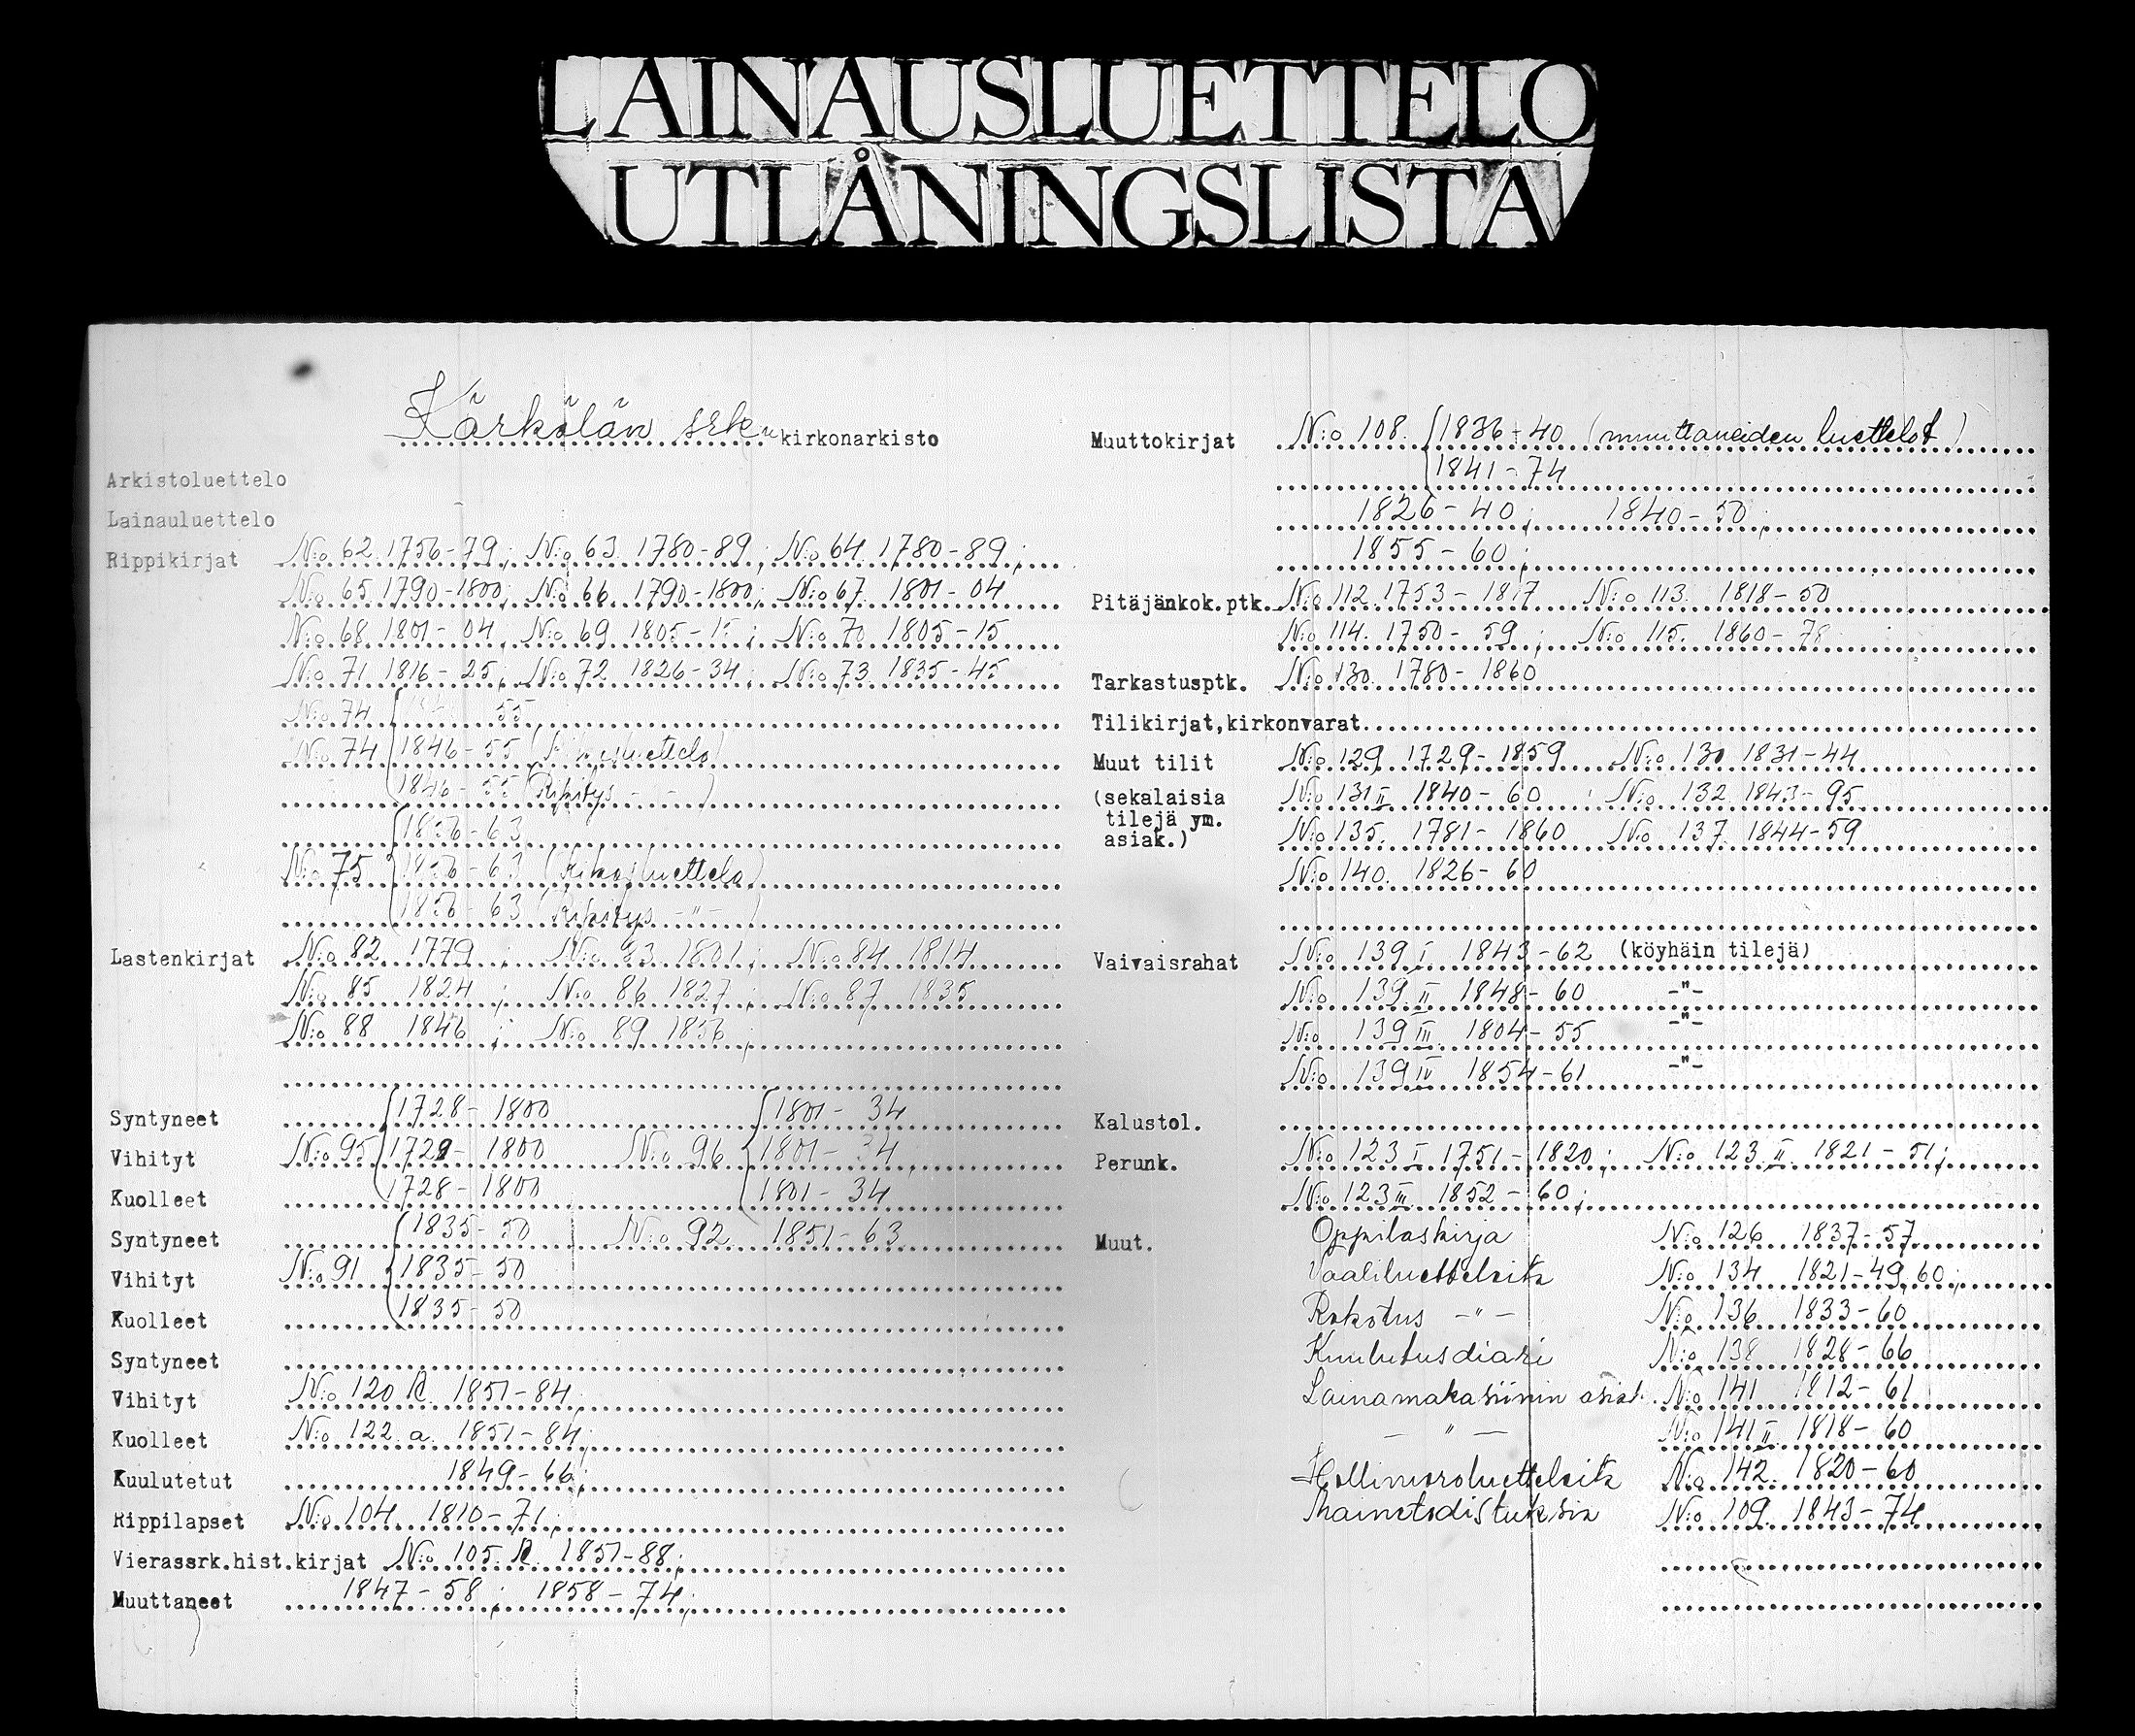 LAINAUSLUETTELO
UTLÅNINGSLISTA
Kärkölän srk:n kirkonarkisto
Arkistoluettelo
Lainauluettelo
Rippikirjat N:o 62. 1756-79; N:o 63. 1780-89; N:o 64. 1780-89;
N:o 65 1790-1800; N:o 66. 1790-1800; N:o 67. 1801-04
N:o 68. 1801-04; N:o 69. 1805-15; N:o 70. 1805-15
N:o 71 1816-25; N:o 72 1826-34; N:o 73. 1835-45
N:o 74 55
N:o 74 1846-55
1846-55 (Ripitys - " - )
1856-63
N:o 75 1856-63 (Rikosluettelo)
1856-63 (Ripitys - " - )
Lastenkirjat N:o 82 1779; N:o 83 1801; N:o 84 1814
N:o 85 1824; N:o 86 1827; N:o 87 1835
N:o 88 1846; N:o 89 1856;
Syntyneet 1728-1800 1801-34
Vihityt N:o 95 1729-1800 N:o 96 1801-34;
Kuolleet 1728-1800 1801-34
Syntyneet 1835-50 N:o 92 1851-63
Vihityt N:o 91 1835-50
Kuolleet 1835-50
Syntyneet
Vihityt N:o 120 1851-84;
Kuolleet N:o 122.a. 1851-84;
Kuulutetut 1849-66;
Rippilapset N:o 104. 1810-71;
Vierassrk.hist.kirjat N:o 105. 1851-88;
Muuttaneet 1847-58; 1858-74;
Muuttokirjat N:o 108. 1836-40 (muuttaneiden luettelot)
1841-74
1826-40; 1840-50;
1855-60;
Pitäjänkok.ptk. N:o 112 1753-1817 N:o 113. 1818-50
N:o 114. 1750-59; N:o 115. 1860-78
Tarkastusptk. N:o 130. 1780-1860
Tilikirjat,kirkonvarat
Muut tilit N:o 129 1729-1859 N:o 130 1831-44
(sekalaisia N:o 131 II 1840-60 N:o 132 1843-95
tilejä ym.
asiak.) N:o 135. 1781-1860 N:o 137. 1844-59
N:o 140. 1826-60
Vaivaisrahat N:o 139 I 1843-62 (köyhäin tilejä)
N:o 139 II 1848-60 -"-
N:o 139 III 1804-55 -"-
N:o 139 IV 1854-61 -"-
Kalustol.
Perunk. N:o 123 I 1751-1820; N:o 123 II 1821-51;
N:o 123 III 1852-60;
Muut. Oppilaskirja N:o 126 1837-57
Vaaliluetteloita N:o 134 1821-49,60;
Rokotus -"- N:o 136 1833-60
Kuulutusdiari N:o 138 1828-66
Lainamakasiinin asiak. N:o 141 1812-61
- " - N:o 141 II 1818-60
N:o 142. 1820-60
Mainetodistuksia N:o 109. 1843-74